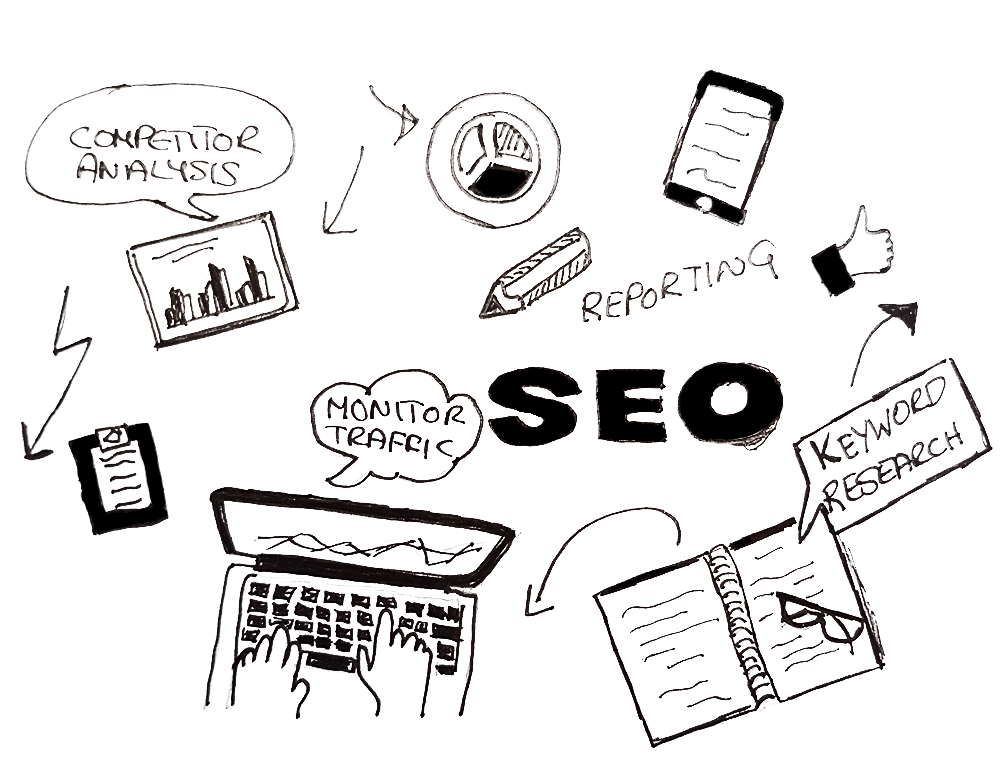 COMPETITOR
ANALYSIS
REPORTING
SEO
MONITOR
TRAFFIC
KEYWORD
RESEARCH